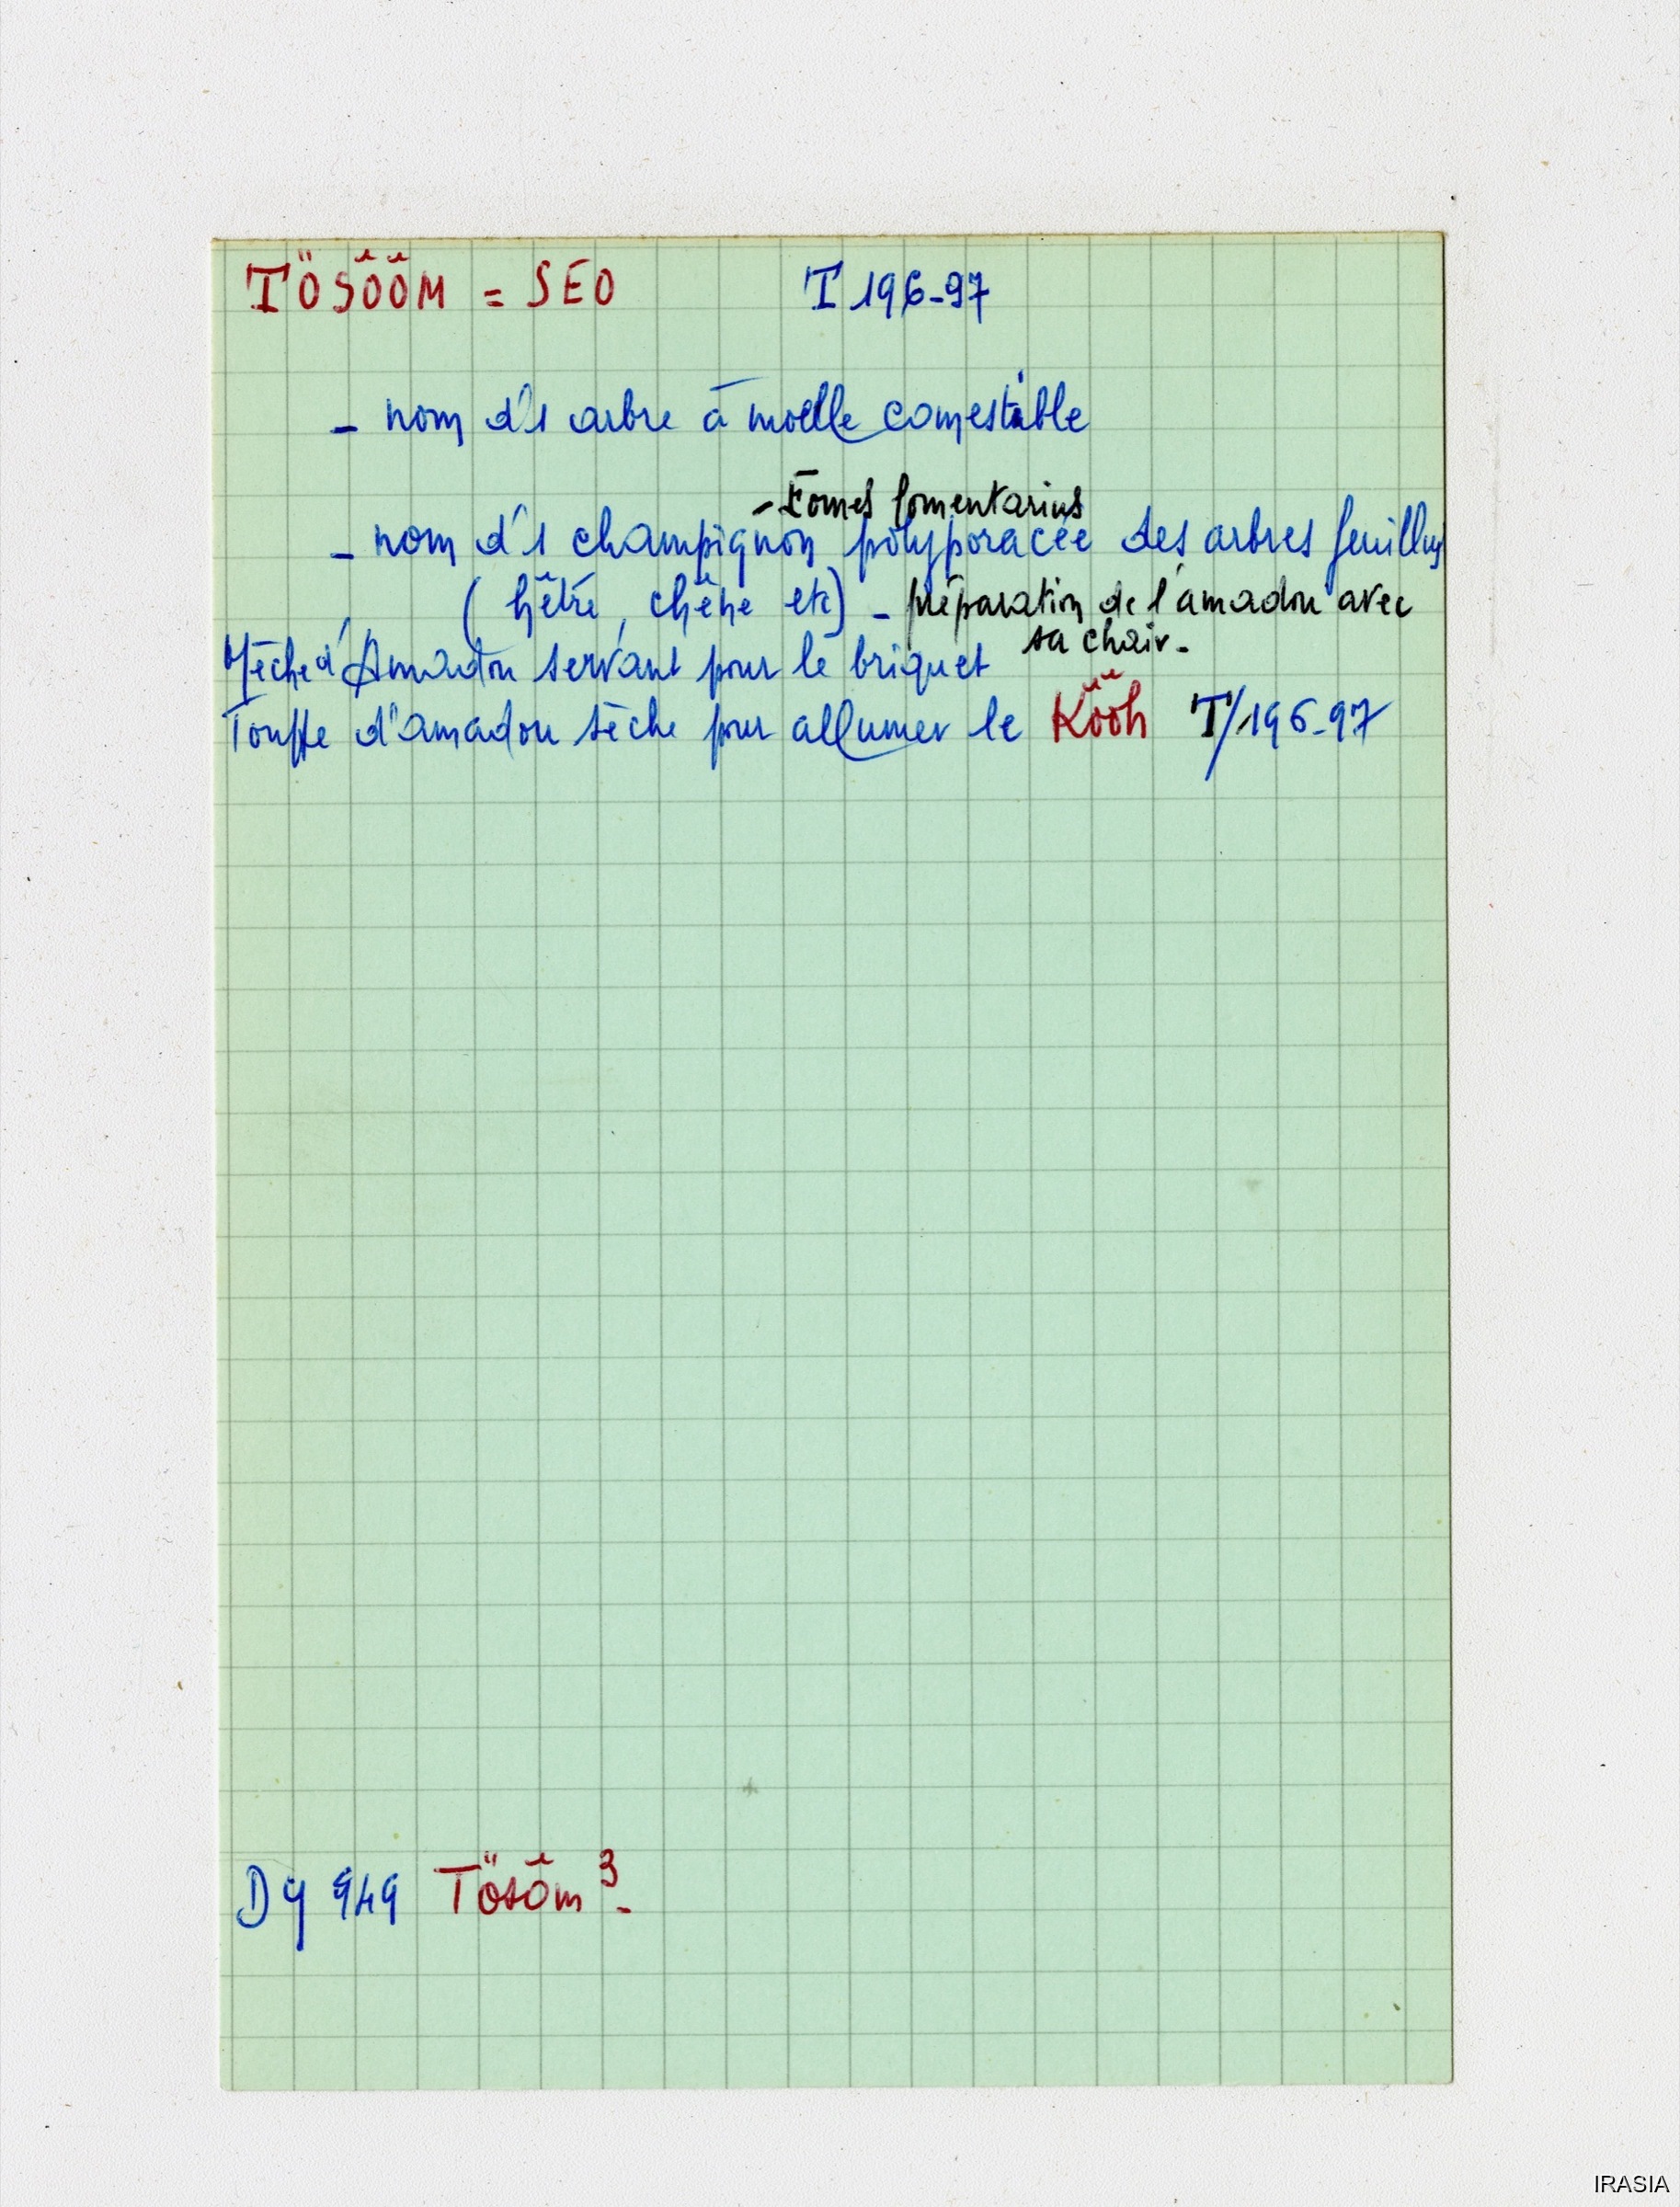 TÖSÔÔM = SEO T 196-97
- nom d'1 arbre à moelle comestible
- Fomes fomentarius
- nom d'1 champignon polyporacée des arbres feuillus
( hêtre, chêne etc) - préparation de l'amadou avec
sa chair -
Mèche d'Amadou servant pour le briquet
Touffe d'amadou sèche pour allumer le Kôôh T/196-97
DY 949 Tösôm 3 -
IRASIA